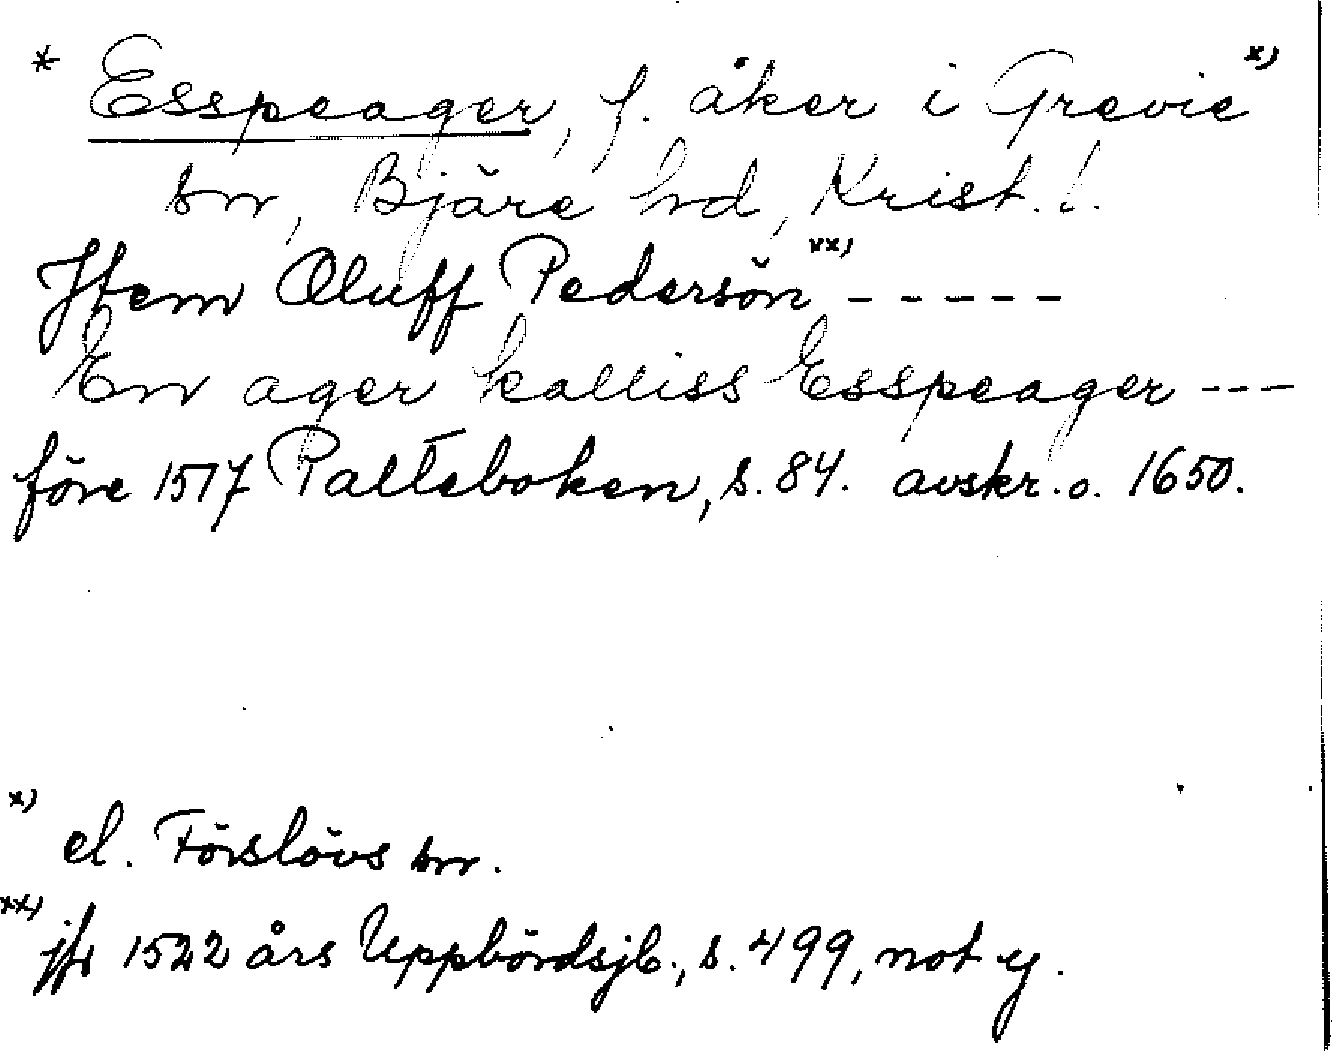 * Esspeager, f. åker i Grevie x)
sn, Bjäre hd, Krist. l.
Jtem Oluff Pedersön xx) - - - - -
En ager kalliss Esspeager - - -
före 1517 Palteboken, s. 84. avskr. o. 1650.
x) el. Förslövs sn.
xx) jfr 1522 års Uppbördsjb., s. 499, not y.